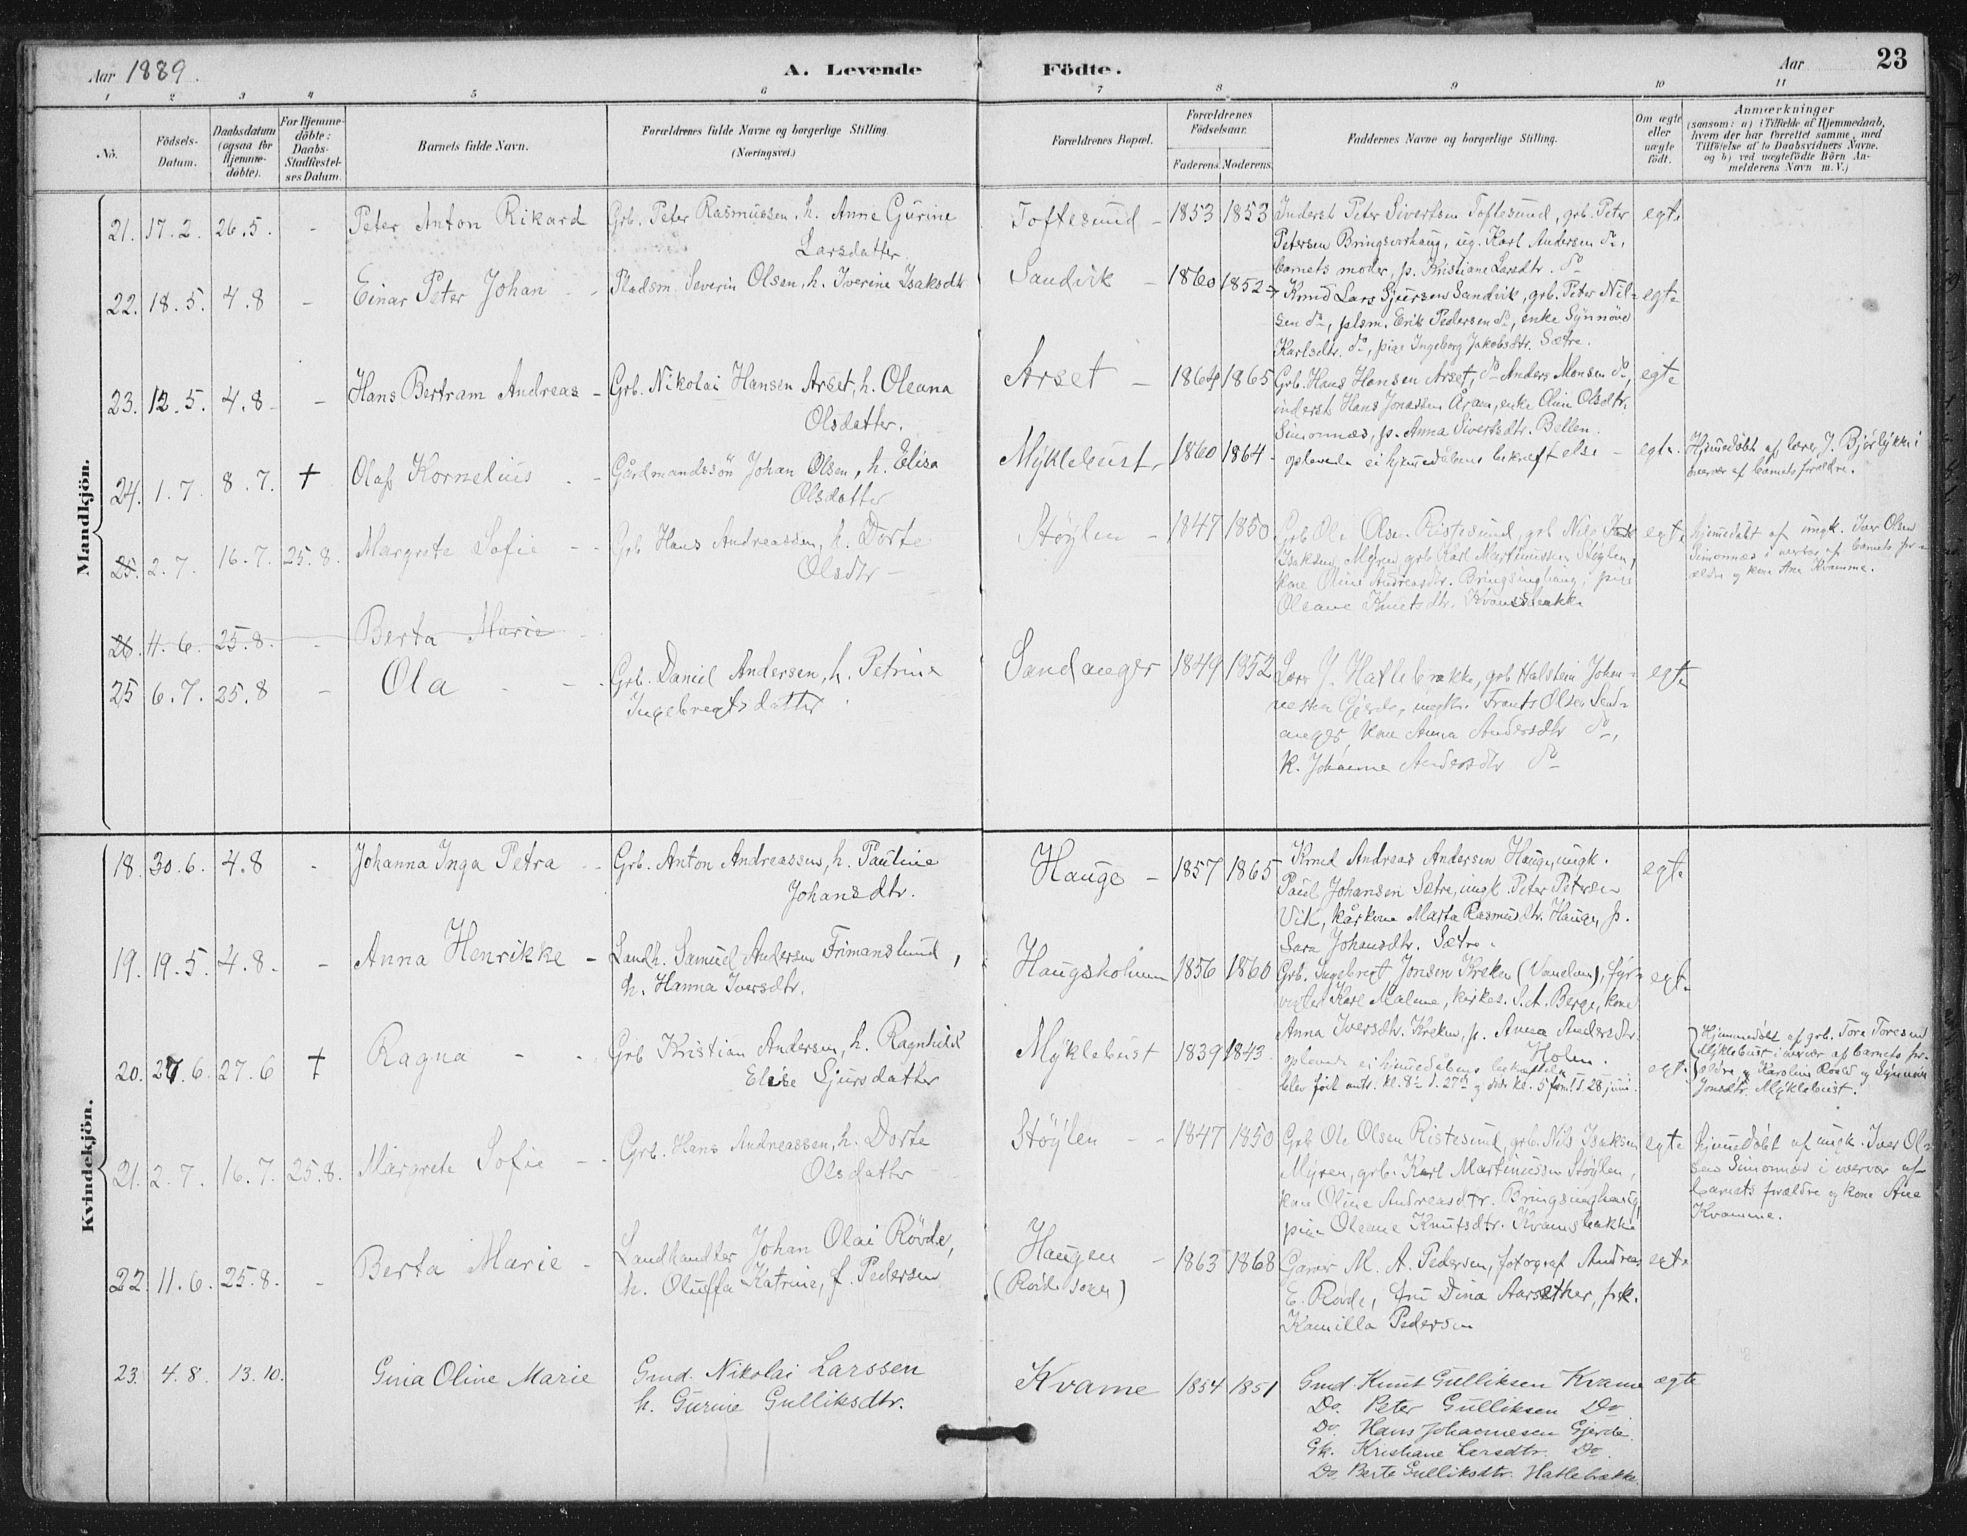 Aar 1889.
A. Levende Födte.
Aar
23
1 2 3 4 5 6 7 8 9 10 11
No.
Födsels-Datum.
Daabsdatum (ogsaa for Hjemme-döbte).
For Hjemme-döbte: Daabs-Stadfæstel-ses Datum.
Barnets fulde Navn.
Forældrenes fulde Navne og borgerlige Stilling. (Næringsvei.)
Forældrenes Bopæl.
Forældrenes Födselsaar.
Faderens. Moderens.
Faddernes Navne og borgerlige Stilling.
Om ægte eller uægte födt.
Anmærkninger
(saasom: a) i Tilfælde af Hjemmedaab, hvem der har forrettet samme, med Tilföielse af to Daabsvidners Navne. og b) ved uægtefödte Börn An-melderens Navn m. V.)
Mandkjön.
21. 17.2. 26.5. - Peter Anton Rikard
Grb. Peter Rasmussen, h. Anne Gurine
Larsdatter.
Toftesund - 1853 1853
Inderst Peter Sivertsen Toftesund, grb. Peter
Petersen Bringsvorhaug, ug. Karl Andersen do,
barnets moder, p. Kristiane Larsdtr. do
egte
22. 18.5. 4.8 - Einar Peter Johan - -
Pladsm. Severin Olsen, h. Iverine Isaksdtr
Sandvik - 1860 1852
Kmd Lars Sjursen Sandvik, grb. Peter Nil-
sen do, plsm. Erik Pedersen do, enke Synnöve
Karlsdtr. do, pige Ingeborg Jakobsdtr. Sætre.
egte
23. 12.5. 4.8 - - Hans Bertram Andreas -
Grb. Nikolai Hansen Arset, h. Oleana
Olsdatter.
Arset - 1864 1865
Grb. Hans Hansen Arset, do Anders Monsen do,
inderst Hans Jonassen Aram, enke Oline Olsdtr.
Simonnæs, p. Anna Sivertsdtr. Bellen.
egte
24. 1.7. 8.7. † Olaf Kornelius - -
Gårdmandssön Johan Olsen, h. Elisa
Olsdatter
Myklebust, 1860 1864 -
oplevede ei hjemedåbens bekræftelse -
egte.
Hjemedöbt af lærer J. Bjørlykke i
overvær af barnets forældre.
25. 2.7. 16.7. 25.8. Margrete Sofie - -
Grb Hans Andreassen, h. Dorte
Olsdtr -
Stöylen - 1847 1850
Grb Ole Olsen Ristesund, grb Nils
Isaksen Myren grb Karl Martinussen Stöylen,
kone Oline Andreasdtr. Bringsinghaug, pige
Oleane Knutsdtr. Kvamsbakke
egte
hjemedöbt af ungk. Iver Olsen
Simonnæs i overvær af barnets for-
ældre og kone Ane Kvamme.
26. 4.6. 25.8. - Berta Marie -
25 6.7. 25.8 - Ola - - -
Grb. Daniel Andersen, h. Petrine
Ingebregtsdatter
Sandanger 1849 1852
Lærer J. Hatlebrække, grb Halstein Johan-
nessen Gjerde, ungk. Frants Olsen Sand-
anger, kone Anna Andersdtr do,
k. Johanne Andersdtr do
egte
Kvindekjön.
18. 30.6. 4.8 - Johanna Inga Petra -
Grb. Anton Andreassen, h. Pauline
Johansdtr.
Hauge - 1857 1865
Kmd Andreas Andersen Hauge, ungk.
Paul Johansen Sætre, ungk. Peter Petersen
Vik, kårkone Marta Rasmusdtr. Hauge, p.
Sara Johansdtr. Sætre.
egte
19. 19.5. 4.8. - Anna Henrikke -
Landh. Samuel Andersen Frimanslund,
h. Hanna Iversdtr.
Haugsholmen 1856 1860
Grb. Ingebregt Jonsen Kreken (Vanelven), fyr-
vogter Karl Malme, kirkes. S. A. Berge, kone
Anna Iversdtr. Kreken, p. Anna Andersdtr
Holen.
egte
20. 27.6. 27.6 † Ragna - -
Grb Kristian Andersen, h. Ragnhild
Elise Sjursdatter
Myklebust 1839 1843.
oplevede ei hjemedåbens bekræftelse
blev födt omtr. kl. 8½ d. 27de og döde kl. 5 fom. d 28 juni.
egte.
Hjemmedöbt af grb. Tore Toresen
Myklebust i overvær af barnets for-
ældre og Karoline Roald og Synnöve
Jonsdtr. Myklebust.
21. 2.7. 16.7. 25.8. Margrete Sofie - -
Grb. Hans Andreassen, h. Dorte
Olsdatter -
Stöylen - - 1847 1850
Grb Ole Olsen Ristesund, grb. Nils Isaksen
Myren, grb. Karl Martinussen Stöylen,
kone Oline Andreasdtr. Bringsinghaug,
pige Oleane Knutsdtr. Kvamsbakke
egte
Hjemedöbt af ungk. Iver Ol-
sen Simonnæs i overvær af
barnets forældre og kone Ane
Kvamme.
22. 11.6. 25.8. - Berta Marie -
Landhandler Johan Olai Rövde,
h. Oluffa Katrine, f. Pedersen
Haugen
(Rövde sogn)
- 1863 1868
Garver M. A. Pedersen, fotograf Andreas
E. Rövde, fru Dina Aarsæther, frk.
Kamilla Pedersen
egte
23. 4.8. 13.10. Gina Oline Marie
Gmd. Nikolai Larssen
h. Gurine Gulliksdtr.
Kvame 1854 1851
Gmd. Knut Gulliksen Kvame
Do. Peter Gulliksen Do
Do. Hans Johannesen Gjerde
Gk. Kristiane Larsdtr. Do
Do. Berte Gulliksdtr. Hatlebrække
ægte